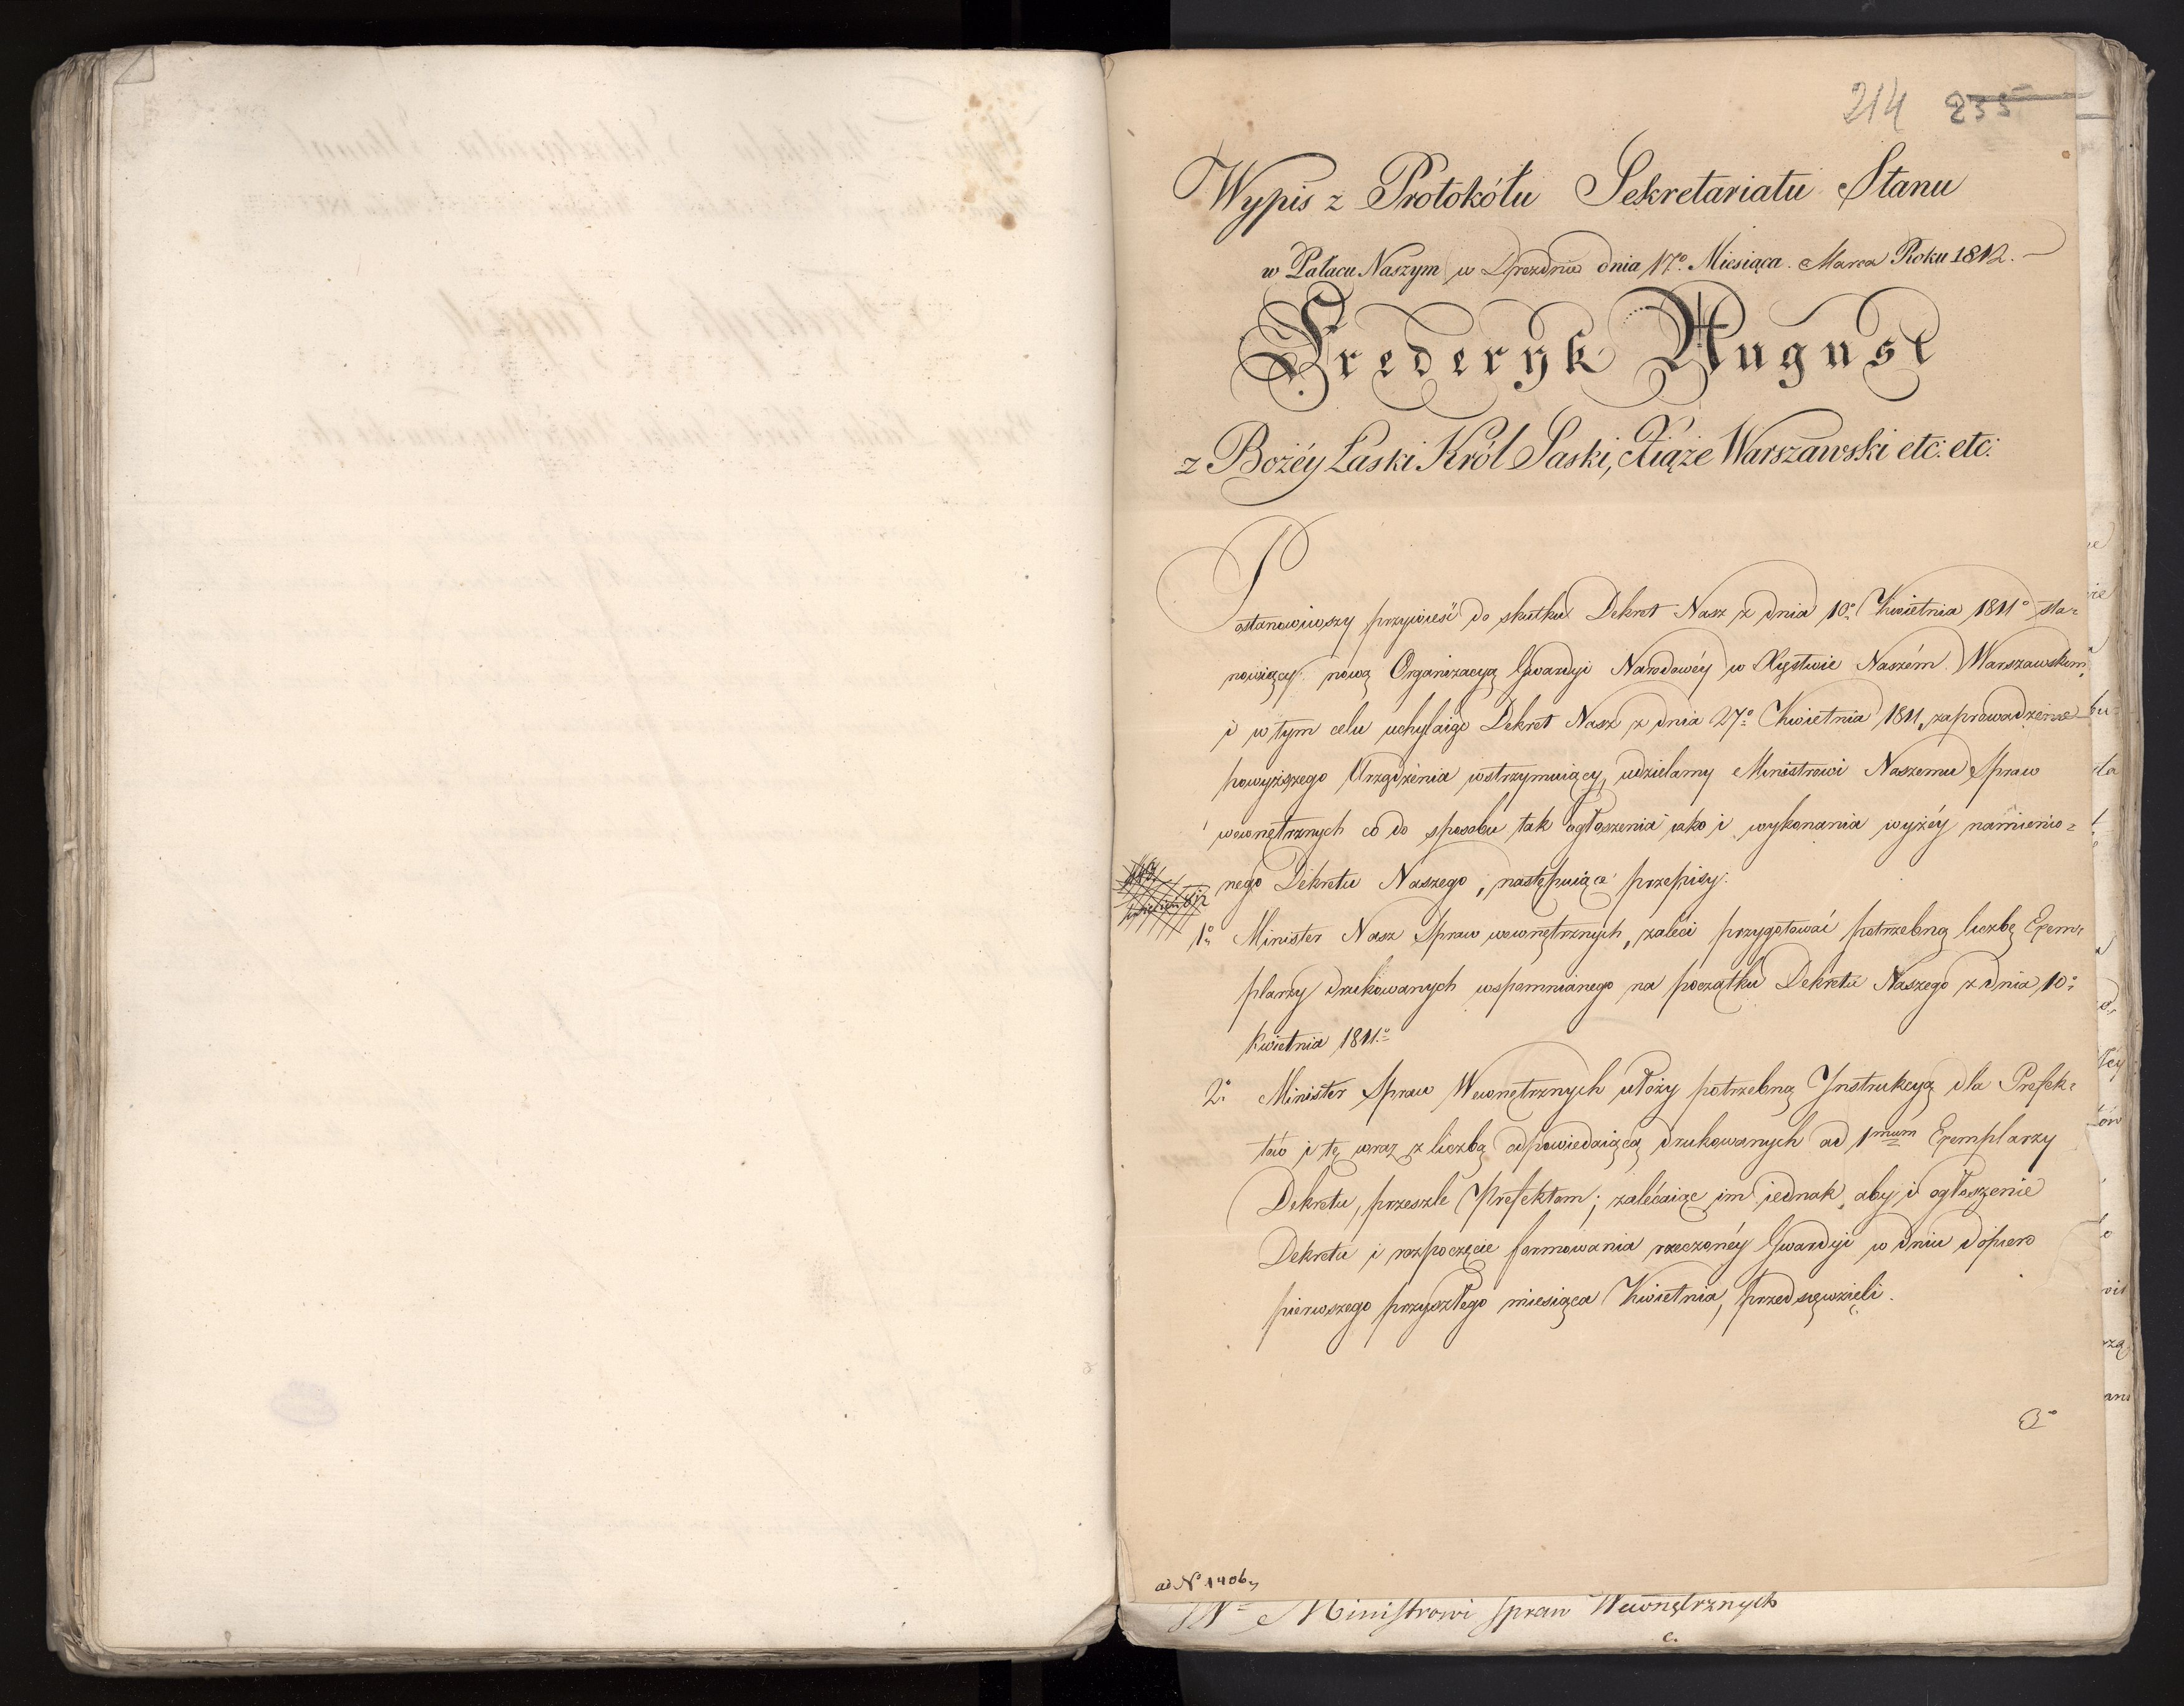 214 235
Wypis z Protokółu Sekretariatu Stanu
w Pałacu Naszym w Dreznie dnia 17º Miesiąca Marca Roku 1812.
Frederyk August
z Bożéy Łaski Król Saski, Xiąże Warszawski etc: etc:
Postanowiwszy przywieść do skutku Dekret Nasz z dnia 10º Kwietnia 1811º sta=
nowiący nową Organizacyą Gwardyi Narodowéy w Xięstwie Naszém Warszawskim,
i w tym celu uchylaiąc Dekret Nasz z dnia 27º Kwietnia 1811, zaprowadzenie
powyższego Urządzenia wstrzymuiący, udzielamy Ministrowi Naszemu Spraw
wewnętrznych co do sposobu tak ogłoszenia iako i wykonania wyżéy namienio=
nego Dekretu Naszego, następuiące przepisy:
1º Minister Nasz Spraw wewnętrznych, zaleci przygotować potrzebną liczbę Exem=
plarzy drukowanych wspomnianego na początku Dekretu Naszego z dnia 10º
Kwietnia 1811º
2º Minister Spraw Wewnętrznych ułoży potrzebną Instrukcyą dla Prefek=
tów i tę wraz z liczbą odpowiedaiącą drukowanych ad 1mum Exemplarzy
Dekretu, prześle Prefektom; zalécaiąc im iednak, aby i ogłoszenie
Dekretu i rozpoczęcie formowania rzeczonéy Gwardyi w dniu dopiero
pierwszego przyszłego miesiąca Kwietnia, przedsięwzięli.
3º
ad Nº 1406
Ministrowi spraw Wewnętrznych